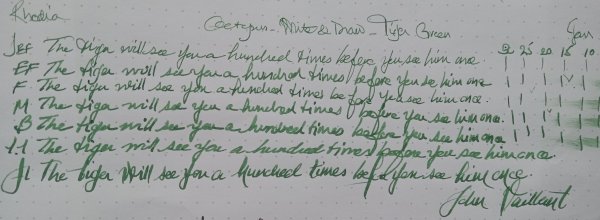 Rhodia
Octopus - Write & Draw - Tiger Green
JEF The tiger will see you a hundred times before you see him once 30 25 20 15 10
EF The tiger will see you a hundred times before you see him once
F The tiger will see you a hundred times before you see him once
M The tiger will see you a hundred times before you see him once
B The tiger will see you a hundred times before you see him once
The tiger will see you a hundred times before you see him once
The tiger will see you a hundred times before you see him once
John Vaillant